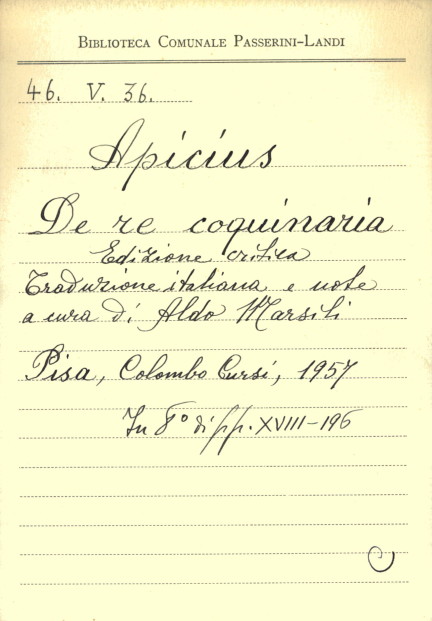 BIBLIOTECA COMUNALE PASSERINI-LANDI
46. V. 36.
Apicius
De re coquinaria
Edizione critica
Traduzione italiana e note
a cura di Aldo Marsili
Pisa, Colombo Cursi, 1957
In 8° di pp. XVIII-196